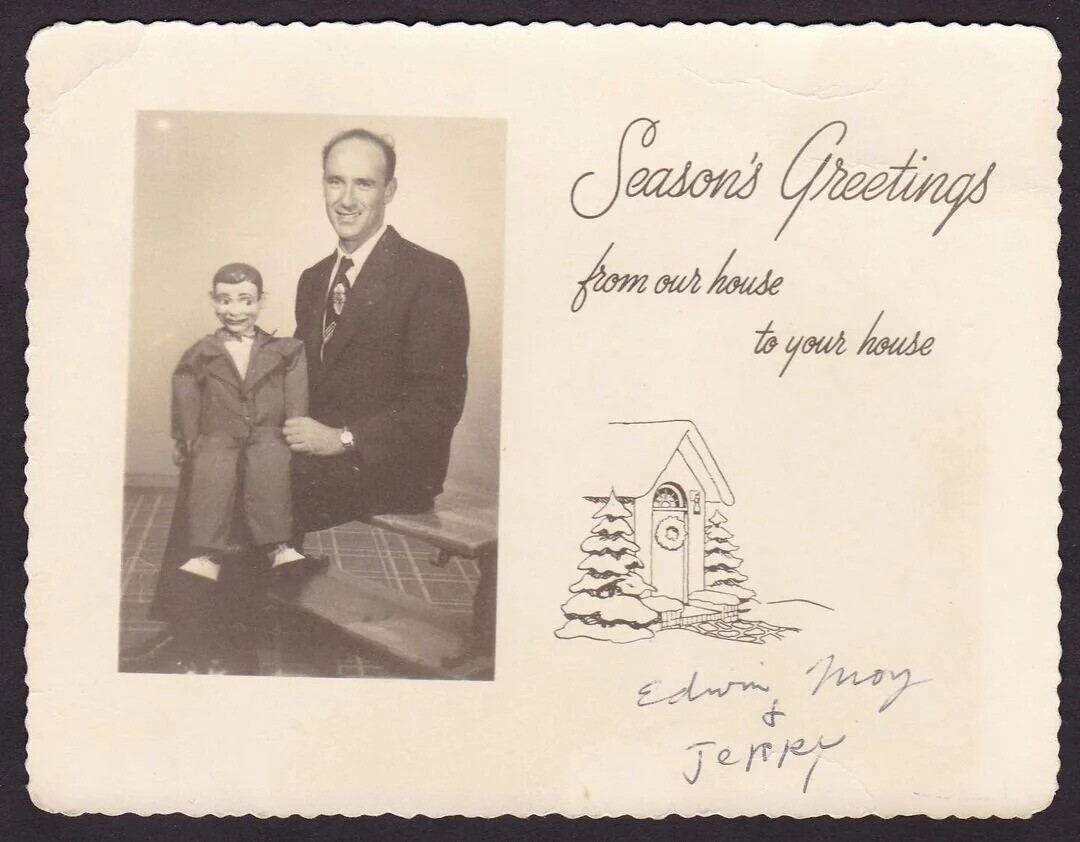 Season's Greetings
from our house
to your house
Edwin Moy
&
Jerry